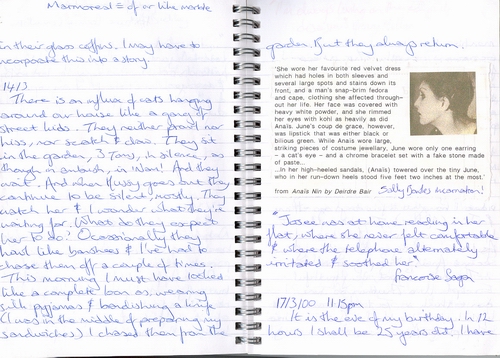 Marmoreal = of or like marble
in their glass coffins. I may have to
incorporate this into a story.
14/3
There is an influx of cats hanging
around our house like a gang of
street kids. They neither prowl nor
hiss, nor scratch & claw. They sit
in the garden, 4 Toms, in silence, as
though in ambush in 'Nam! And they
wait. And when Missy goes out they
continue to be silent, mostly. They
watch her & I wonder what they're
waiting for. What do they expect
her to do? Ocassionally they
howl like banshees & I've had to
chase them off a couple of times.
This morning I must have looked
like a complete bar as, wearing
silk pyjamas & brandishing a knife
(I was in the middle of preparing my
sandwiches) I chased them from the
garden. But they always return.
'She wore her favourite red velvet dress
which had holes in both sleeves and
several large spots and stains down its
front, and a man's snap-brim fedora
and cape, clothing she affected through-
out her life. Her face was covered with
heavy white powder, and she rimmed
her eyes with kohl as heavily as did
Anaïs. June's coup de grace, however,
was lipstick that was either black or
bilious green. While Anaïs wore large,
striking pieces of costume jewellery, June wore only one earring
– a cat's eye – and a chrome bracelet set with a fake stone made
of paste...
...In her high-heeled sandals, (Anaïs) towered over the tiny June,
who in her run-down heels stood five feet two inches at the most.'
from Anaïs Nin by Deirdre Bair
Sally Bowles incarnation!
"Josee was at home reading in her
flat, where she never felt comfortable
& where the telephone alternately
irritated & soothed her"
Francoise Sagan
17/3/00 11.15pm
It is the eve of my birthday. In 12
hours I shall be 25 years old. I have